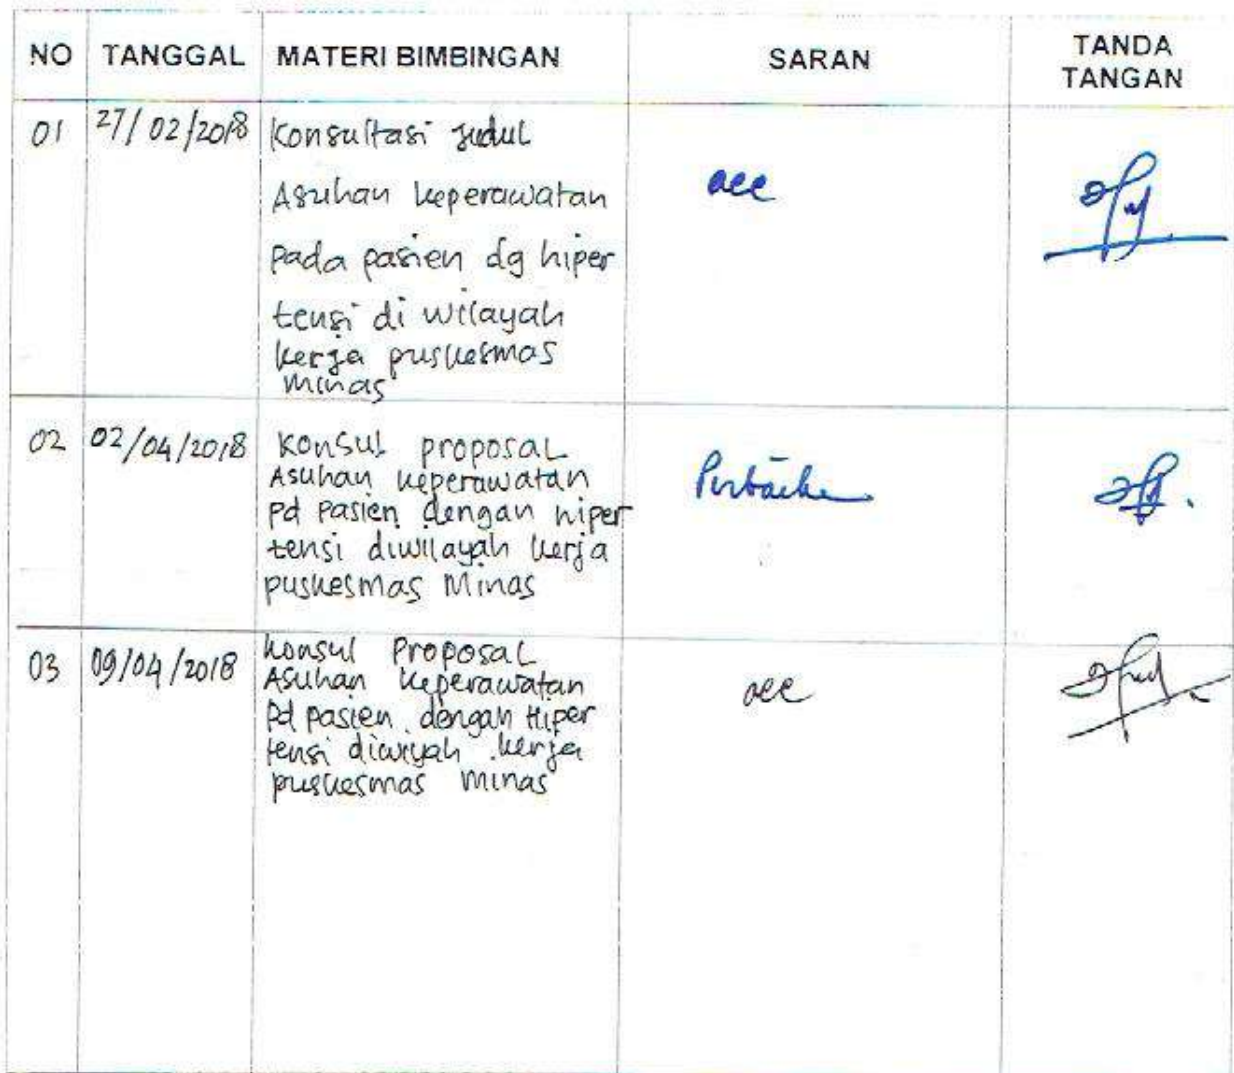 NO TANGGAL MATERI BIMBINGAN SARAN TANDA TANGAN
01 27/02/2018 Konsultasi judul
Asuhan keperawatan acc
pada pasien dg hiper
tensi di wilayah
kerja puskesmas
minas
02 02/04/2018 Konsul proposal
Asuhan keperawatan Perbaiki
pd pasien dengan hiper
tensi diwilayah kerja
puskesmas Minas
03 09/04/2018 konsul Proposal
Asuhan keperawatan acc
pd pasien dengan Hiper
tensi diwiyah kerja
puskesmas minas